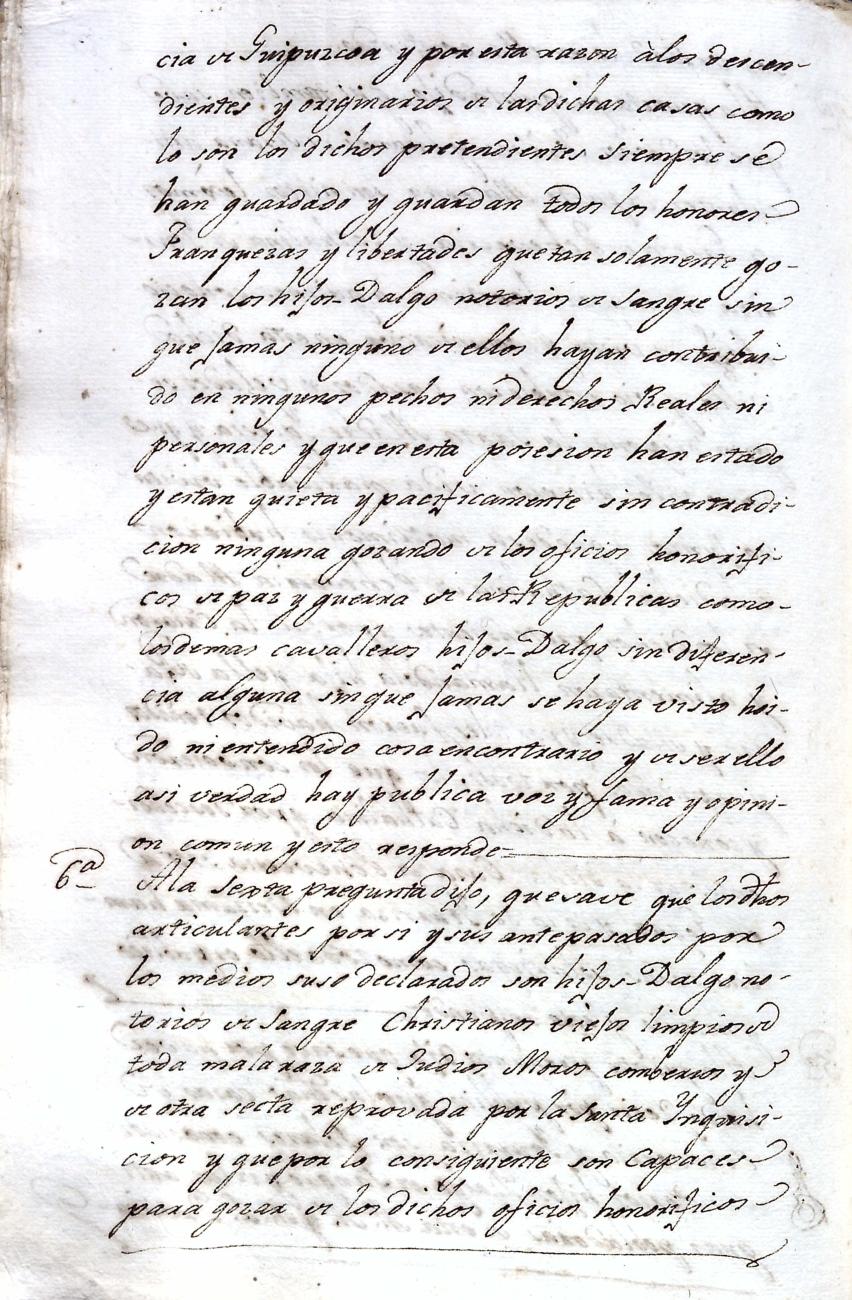 cia de Guipuzcoa y por esta razon àlos descen-
dientes y originarios de las dichas casas como
lo son los dichos pretendientes siempre se
han guardado y guardan todos los honores
Franquezas y libertades que tan solamente go-
zan los hijos-Dalgo notorios de Sangre sin
que Jamas ninguno de ellos hayan contribui-
do en ningunos pechos ni derechos Reales ni
personales y que en esta posesion han estado
y estan quieta y pacificamente sin contradi-
cion ninguna gozando de los oficios honorifi-
cos de paz y guerra de las Republicas como-
los demas cavalleros hijos-Dalgo sin diferen-
cia alguna sin que Jamas se haya visto hoi-
do ni entendido cosa encontrario y de ser ello
asi verdad hay publica voz y fama y opini-
on comun y esto responde=
6ª Ala Sexta pregunta dijo, que save que los dhos
articulantes por si y sus antepasados por
los medios suso declarados son hijos-Dalgo no-
torios de Sangre Christianos viejos limpios de
toda mala raza de Judios Moros combersos y
de otra secta reprovada por la Santa Ynquisi-
cion y que por lo consiguiente son Capaces
para gozar de los dichos oficios honorificos